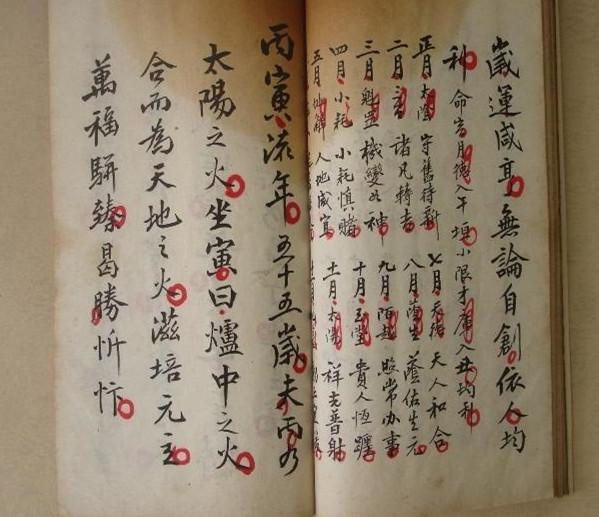 歲運咸亨無論自創依人均
利命宮月德入午垣小限才庫入丑均利
正月太陰守舊待新
七月天德天人和合
二月諸凡轉吉
八月蔭生蔭佑生元
三月魁罡機變如神
九月陌越照常办事
四月小耗小耗慎賭
十月玉堂貴人恆躔
五月人地咸宜
十一月太陽祥光普射
丙寅流年五十五歲夫丙乃
太陽之火坐寅曰爐中之火
合而為天地之火滋培元主
萬福駢臻曷勝忻忭